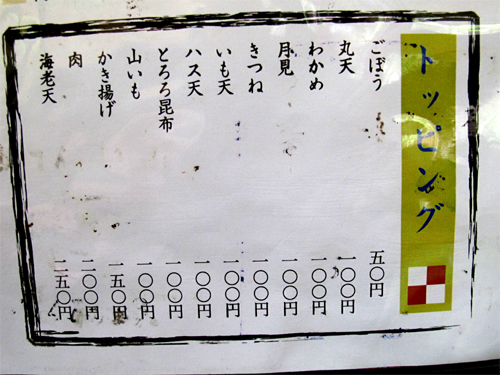 トッピング
ごぼう 五〇円
丸天 一〇〇円
わかめ 一〇〇円
月見 一〇〇円
きつね 一〇〇円
いも天 一〇〇円
ハス天 一〇〇円
とろろ昆布 一〇〇円
山いも 一〇〇円
かき揚げ 一五〇円
肉 二〇〇円
海老天 二五〇円